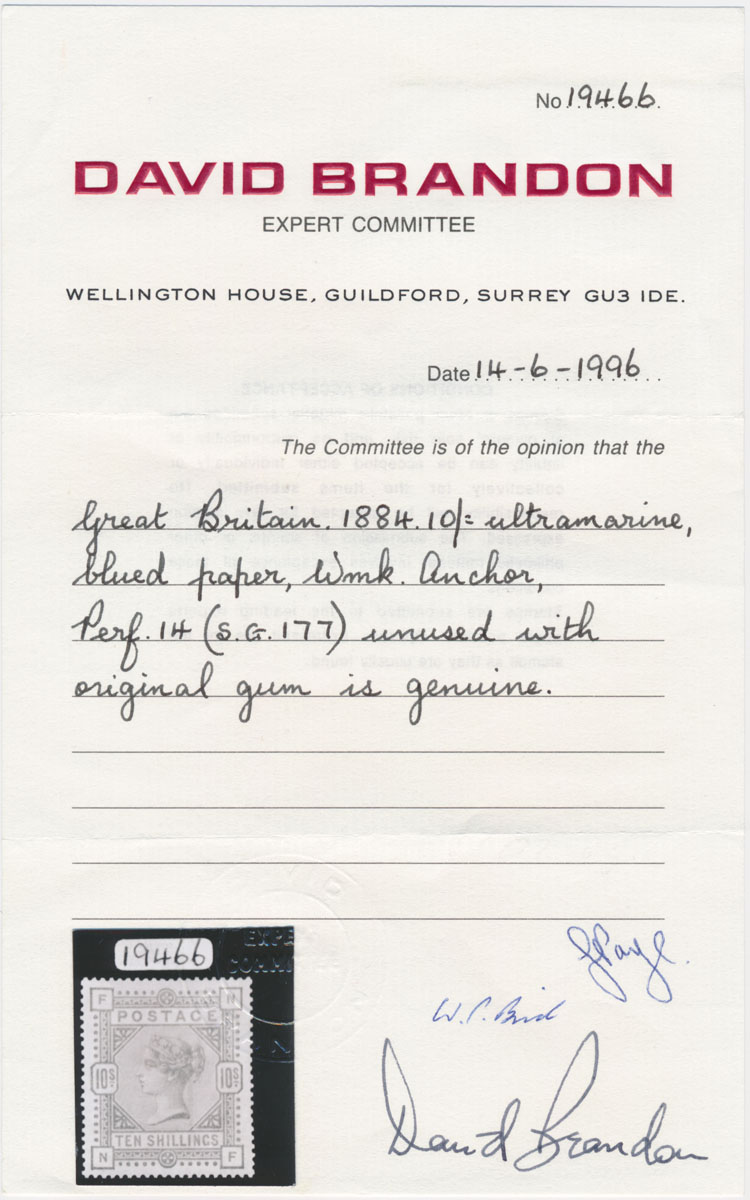 No 19466
DAVID BRANDON
EXPERT COMMITTEE
WELLINGTON HOUSE, GUILDFORD, SURREY GU3 1DE.
Date 14-6-1996
The Committee is of the opinion that the
Great Britain. 1884. 10/= ultramarine,
blued paper, Wmk. Anchor,
Perf. 14 (S.G. 177) unused with
original gum is genuine.
19466
F N
POSTAGE
10S 10S
TEN SHILLINGS
N F
W. P. Bird
David Brandon